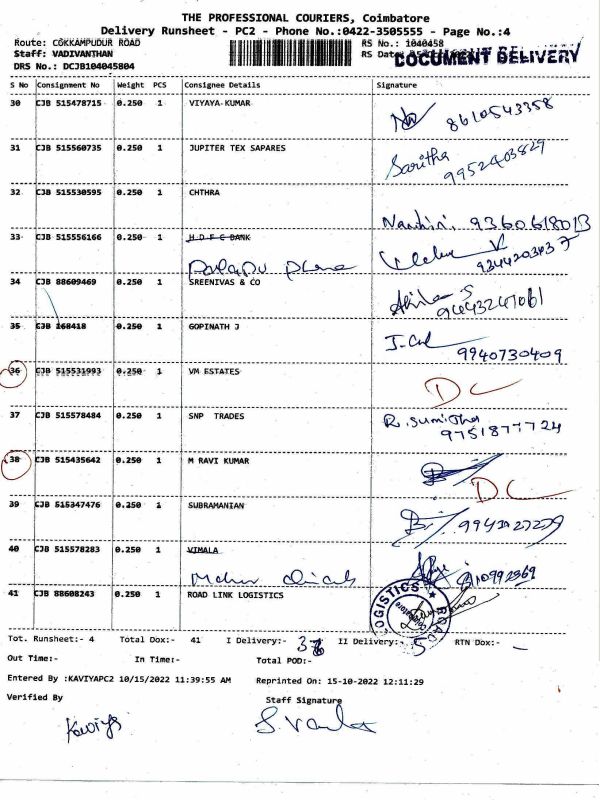 THE PROFESSIONAL COURIERS, Coimbatore
Delivery Runsheet - PC2 - Phone No.:0422-3505555 - Page No.:4
Route: COKKAMPUDUR ROAD RS No.: 1040458
Staff: VADIVANTHAN RS Date:
DOCUMENT DELIVERY
DRS No.: DCJB104045804
S No Consignment No Weight PCS Consignee Details Signature
30 CJB 515478715 0.250 1 VIYAYA KUMAR 8610543358
31 CJB 515560735 0.250 1 JUPITER TEX SAPARES Saritha 9952403829
32 CJB 515530595 0.250 1 CHTHRA Nandhini 9360618013
33 CJB 515556166 0.250 1 H D F C BANK
34 CJB 88609469 SREENIVAS & CO
35 CJB 168418 0.250 1 GOPINATH J 9940730409
36 CJB 515531993 0.250 1 VM ESTATES DC
37 CJB 515578484 0.250 1 SNP TRADES R. Sumitha 9751877724
38 CJB 515435642 0.250 1 M RAVI KUMAR DC
39 CJB 515347476 0.250 1 SUBRAMANIAN
40 CJB 515578283 0.250 1 VIMALA
41 CJB 88608243 0.250 1 ROAD LINK LOGISTICS
LOGISTICS
Tot. Runsheet:- 4 Total Dox:- 41 I Delivery:- II Delivery:- 5 RTN Dox:- -
Out Time:- In Time:- Total POD:-
Entered By :KAVIYAPC2 10/15/2022 11:39:55 AM Reprinted On: 15-10-2022 12:11:29
Verified By Staff Signature
Kaviya